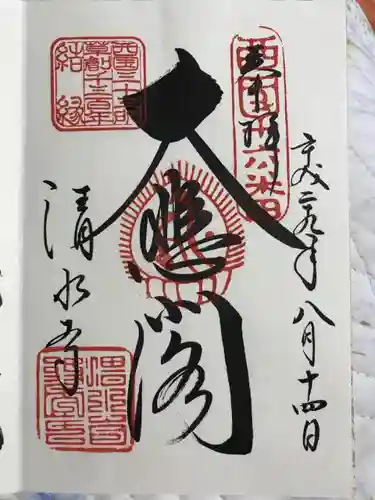 平成二九年八月十四日
奉拝
西国十六番
大悲閣
清水寺
西国三十三所
草創1300年
結縁